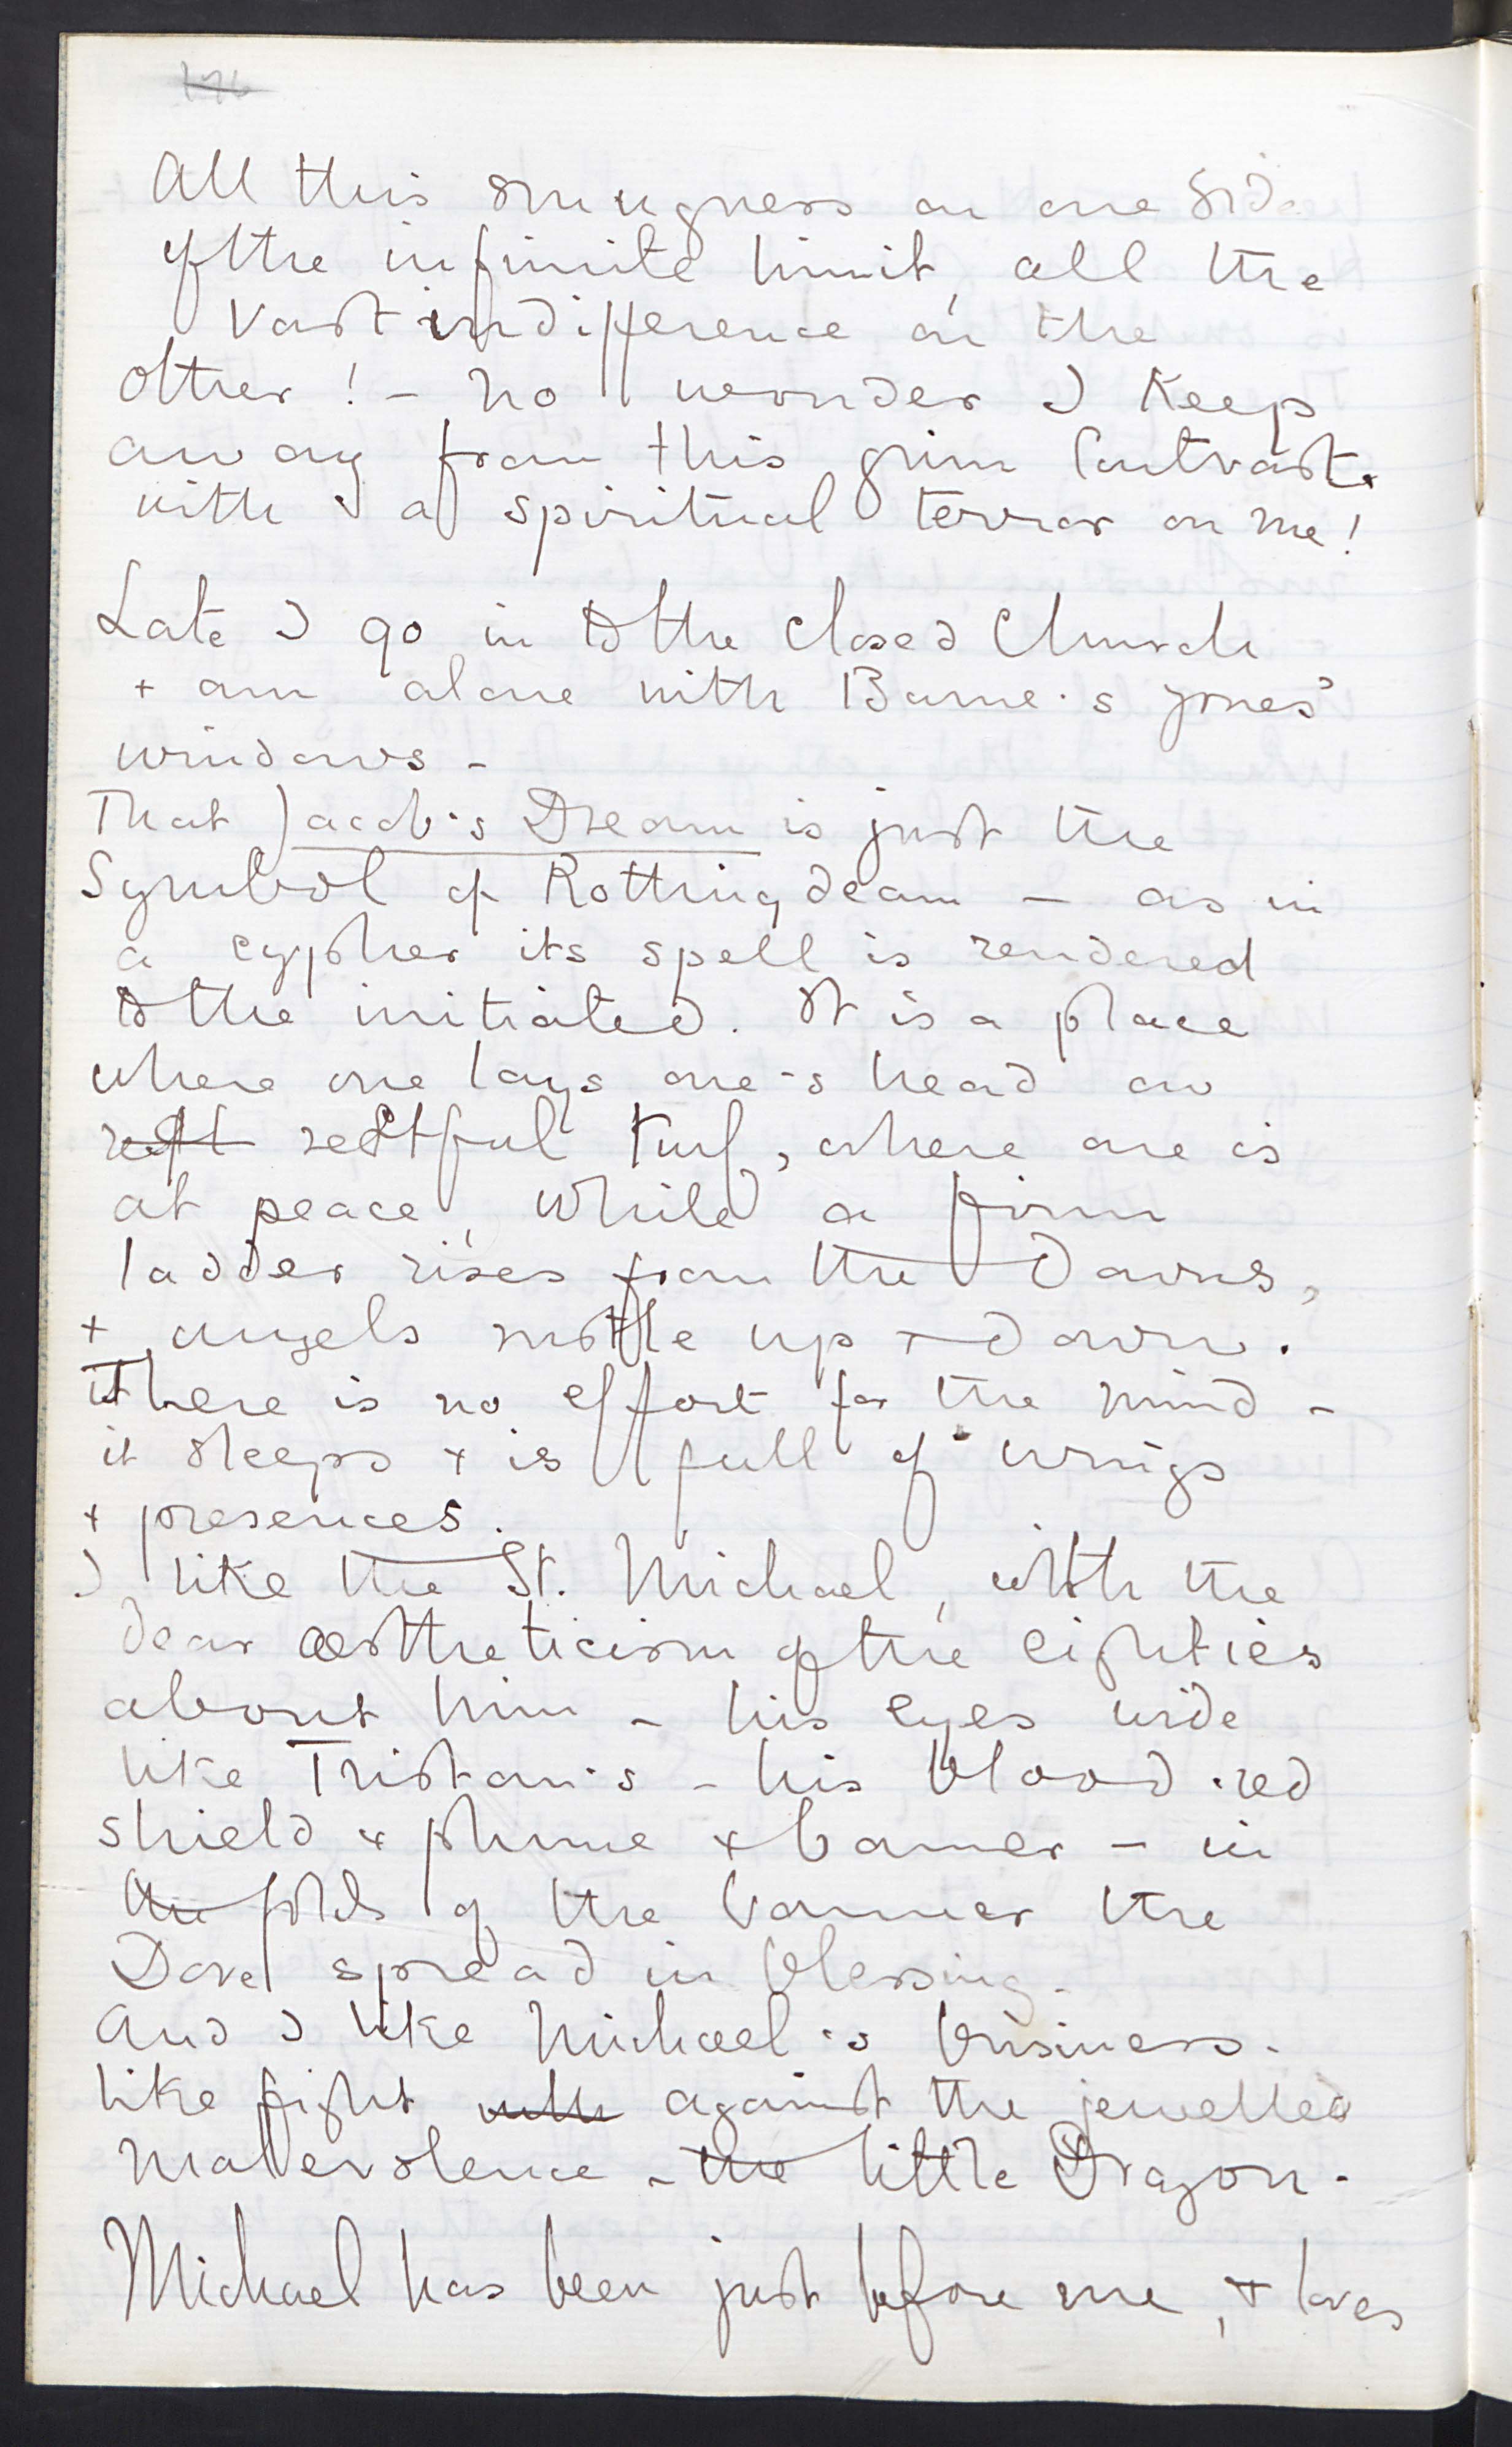 176
All this smugness on one side
of the infinite limit, all the
vast indifference on the
other! - no wonder I keep
away from this grim contrast
with a spiritual terror on me!
Late I go in to the closed Church
+ am alone with Burne's Jones'
windows -
That Jacob's Dream is just the
Symbol of Rottingdean - as in
a cypher its spell is rendered
to the initiated. It is a place
where one lays one's head on
restful turf, where one is
at peace, while a firm
ladder rises from the Downs,
+ angels rustle up + down.
There is no effort for the mind -
it sleeps + is full of wings
+ presences.
I like the St. Michael, with the
dear aestheticism of the eighties
about him - his eyes wide
like Tristan's - his blood-red
shield + plume + banner - in
the folds of the banner the
Dove spread in blessing.
And I like Michael's business.
like fight with against the jewelled
malevolence - the little Dragon -
Michael has been just before me, + loves